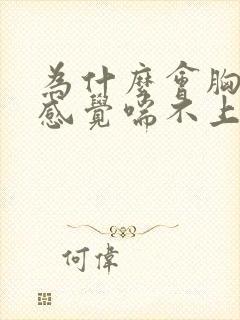 為什麼會胸
感覺喘不上
何偉